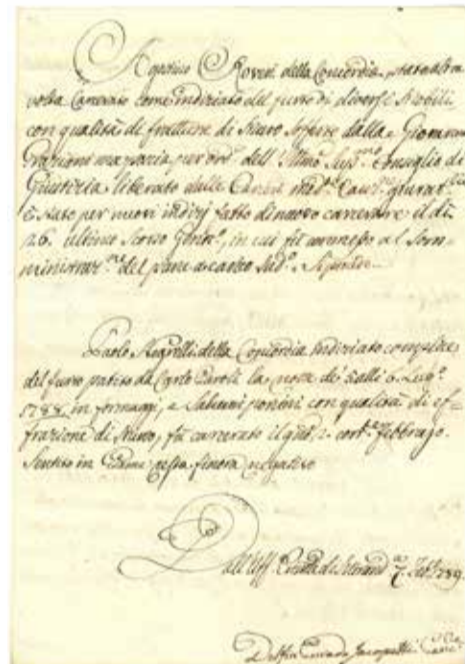 Agostino Roveri della Concordia, stato altra
volta Carcerato come indiziato del furto di diversi Mobili
con qualità di fratture di Muro sofferto dalla Giovanna
Graziani ma poscia per ord.e dell' Ill.mo Sup.mo Consiglio di
Giustizia liberato dalle Carceri
È stato per nuovi indizj fatto di nuovo carcerare il dì
26. ultimo scorso Genn.o, in cui fù commesso al Som-
ministrar.ne del pane a
Paolo Negrelli della Concordia Indiziato complice
del furto patito da Carlo Caroli la notte de' 5 alli 6. Lug.o
1788. in formaggi, e Salumi porcini con qualità di ef-
frazione di Muro, fù carcerato il cor.te Febbrajo.
Sentito in Esame resta finora negativo
Dall' Uff. 7. Feb.o 1789